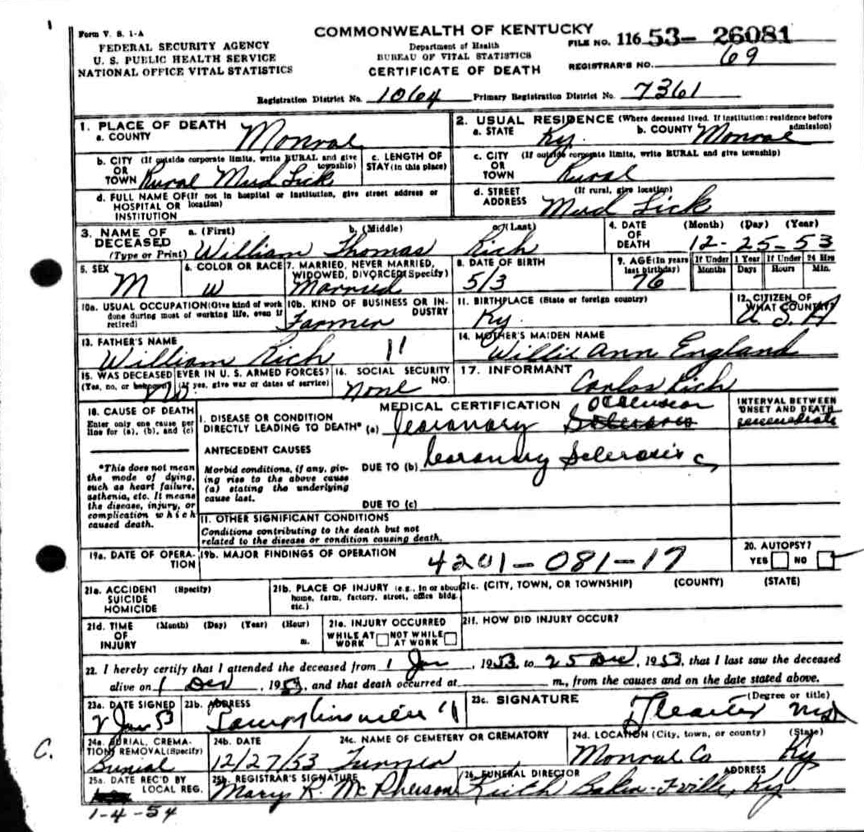 Form V. S. 1-A
COMMONWEALTH OF KENTUCKY
FEDERAL SECURITY AGENCY
U. S. PUBLIC HEALTH SERVICE
NATIONAL OFFICE VITAL STATISTICS
Department of Health
BUREAU OF VITAL STATISTICS
CERTIFICATE OF DEATH
FILE NO. 116 53- 26081
REGISTRAR'S NO. 69
Registration District No. 1064 Primary Registration District No. 7361
1. PLACE OF DEATH
a. COUNTY Monroe
2. USUAL RESIDENCE (Where deceased lived. If institution: residence before admission)
a. STATE Ky. b. COUNTY Monroe
b. CITY (If outside corporate limits, write RURAL and give township)
OR TOWN Rural Mud Lick
c. LENGTH OF STAY (in this place)
c. CITY (If outside corporate limits, write RURAL and give township)
OR TOWN Rural
d. FULL NAME OF (If not in hospital or institution, give street address or location)
HOSPITAL OR INSTITUTION
d. STREET ADDRESS (If rural, give location)
Mud Lick
3. NAME OF DECEASED (Type or Print)
a. (First) b. (Middle) c. (Last)
William Thomas Rich
4. DATE OF DEATH (Month) (Day) (Year)
12-25-53
5. SEX
M
6. COLOR OR RACE
W
7. MARRIED, NEVER MARRIED, WIDOWED, DIVORCED (Specify)
Married
8. DATE OF BIRTH
5/3
9. AGE (In years last birthday) If Under 1 Year Months Days If Under 24 Hrs Hours Min.
76
10a. USUAL OCCUPATION (Give kind of work done during most of working life, even if retired)
10b. KIND OF BUSINESS OR INDUSTRY
Farmer
11. BIRTHPLACE (State or foreign country)
Ky.
12. CITIZEN OF WHAT COUNTRY?
U S A
13. FATHER'S NAME
William Rich
14. MOTHER'S MAIDEN NAME
Willie Ann England
15. WAS DECEASED EVER IN U. S. ARMED FORCES?
(Yes, no, or unknown) (If yes, give war or dates of service)
16. SOCIAL SECURITY NO.
None
17. INFORMANT
Carlos Rich
18. CAUSE OF DEATH
Enter only one cause per line for (a), (b), and (c)
MEDICAL CERTIFICATION
I. DISEASE OR CONDITION
DIRECTLY LEADING TO DEATH* (a) Coronary Sclerosis Occlusion
INTERVAL BETWEEN ONSET AND DEATH
ANTECEDENT CAUSES
*This does not mean the mode of dying, such as heart failure, asthenia, etc. It means the disease, injury, or complication which caused death.
Morbid conditions, if any, giving rise to the above cause (a) stating the underlying cause last.
DUE TO (b) Coronary Sclerosis
DUE TO (c)
II. OTHER SIGNIFICANT CONDITIONS
Conditions contributing to the death but not related to the disease or condition causing death.
19a. DATE OF OPERATION
19b. MAJOR FINDINGS OF OPERATION
4201-081-17
20. AUTOPSY?
YES NO
21a. ACCIDENT SUICIDE HOMICIDE (Specify)
21b. PLACE OF INJURY (e.g., in or about home, farm, factory, street, office bldg. etc.)
21c. (CITY, TOWN, OR TOWNSHIP) (COUNTY) (STATE)
21d. TIME OF INJURY (Month) (Day) (Year) (Hour) m.
21e. INJURY OCCURRED
WHILE AT WORK NOT WHILE AT WORK
21f. HOW DID INJURY OCCUR?
22. I hereby certify that I attended the deceased from 1 Jan, 1953 to 25 Dec, 1953, that I last saw the deceased
alive on 1 Dec, 1953, and that death occurred at m., from the causes and on the date stated above.
23a. DATE SIGNED
2 Jan 53
23b. ADDRESS
23c. SIGNATURE (Degree or title)
MD
C.
24a. BURIAL, CREMATION, REMOVAL (Specify)
Burial
24b. DATE
12/27/53
24c. NAME OF CEMETERY OR CREMATORY
Turner
24d. LOCATION (City, town, or county) (State)
Monroe Co Ky
25a. DATE REC'D BY LOCAL REG.
1-4-54
25b. REGISTRAR'S SIGNATURE
Mary R. McPherson
26. FUNERAL DIRECTOR ADDRESS
Keith Baker-Fville, Ky.